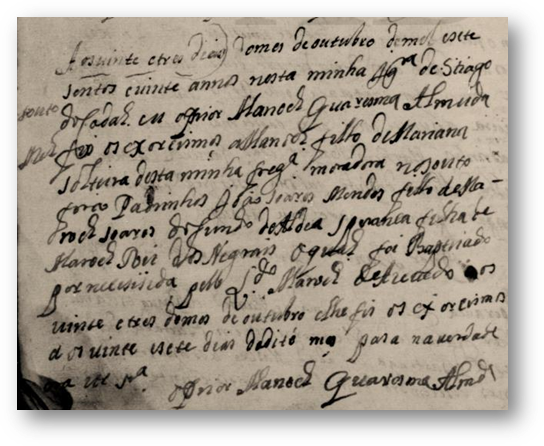 Aos vinte e tres dias do mes de outubro de mil e sete
sentos e vinte annos nesta minha Igra de Stiago
de eu o Prior Manoel Quaresma Almeida
fis os exorcismos a Manoel filho de Mariana
solteira desta minha fregª moradora no souto
forão Padrinhos João soares Mendes filho de Ma-
noel soares defunto de Aldea filha de
Manoel dos Negrais o qual foi Baptizado
por necessida pello Ldo Manoel aos
vinte e tres do mes de outubro e lhe fis os exorcismos
aos vinte e sete dias do dito mes para na verdade
o Prior Manoel Quaresma Almdª